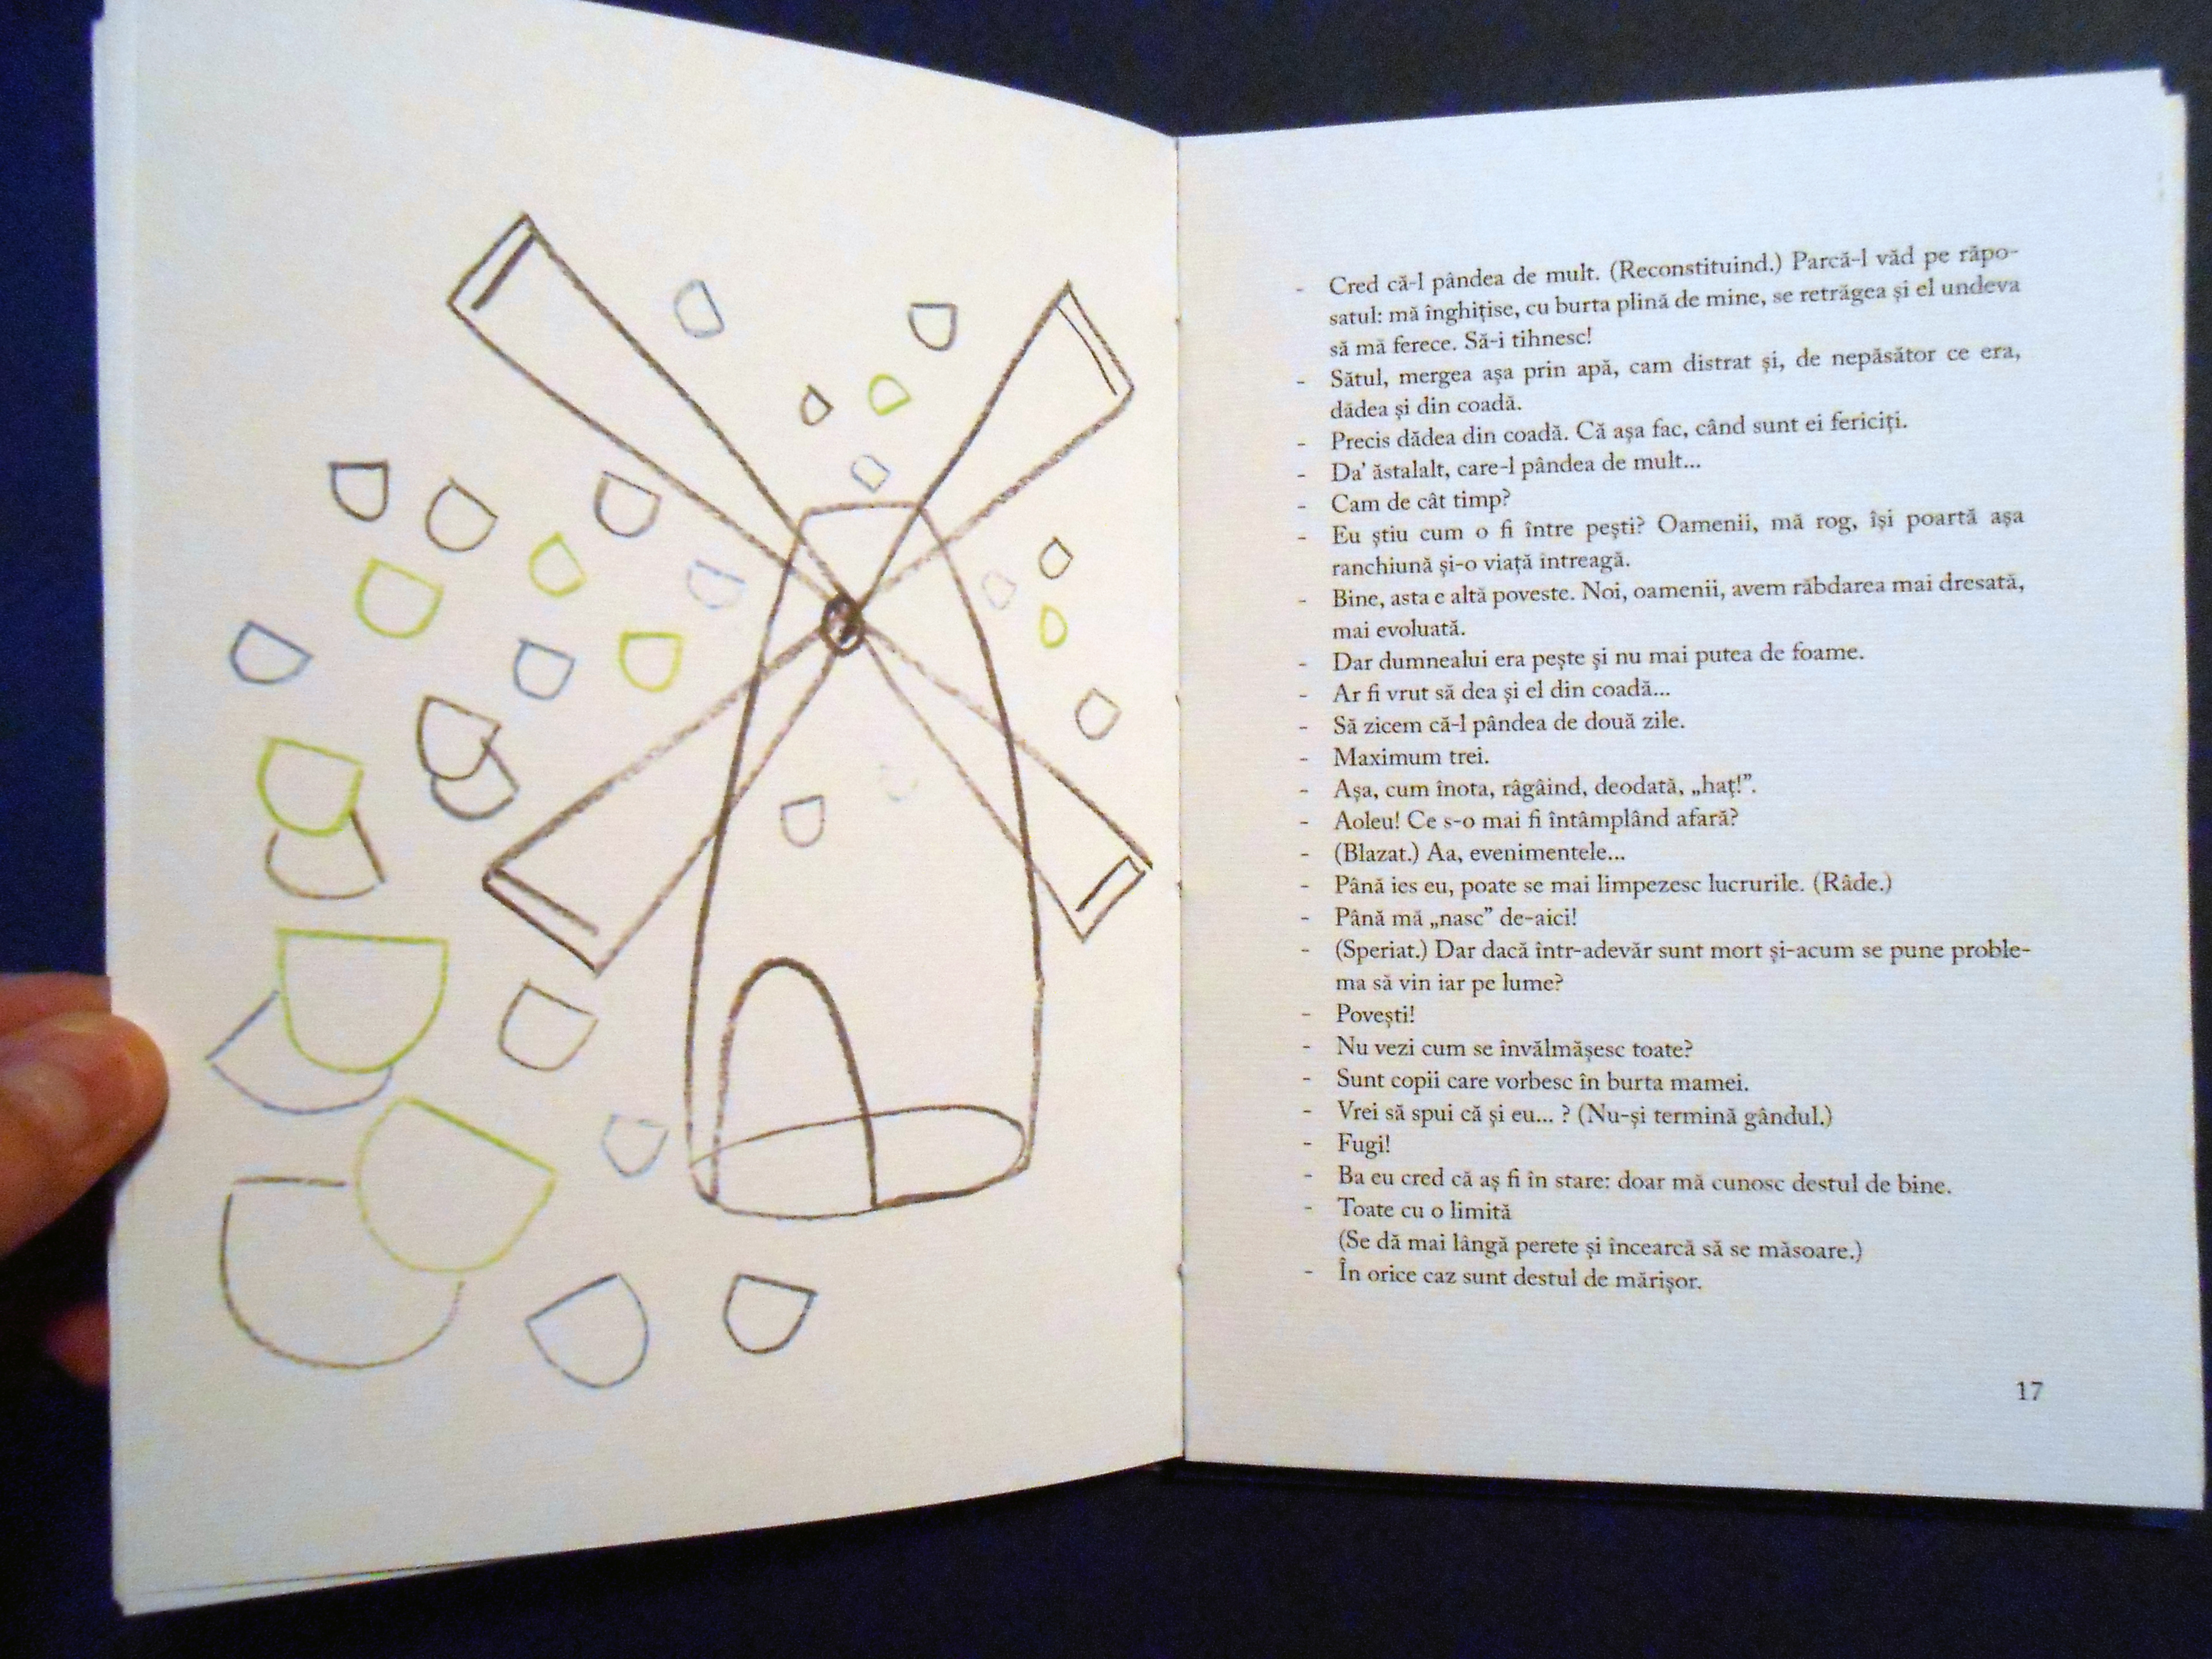 - Cred că-l pândea de mult. (Reconstituind.) Parcă-l văd pe răpo-
satul: mă înghițise, cu burta plină de mine, se retrăgea și el undeva
să mă ferece. Să-i tihnesc!
- Sătul, mergea așa prin apă, cam distrat și, de nepăsător ce era,
dădea și din coadă.
- Precis dădea din coadă. Că așa fac, când sunt ei fericiți.
- Da' ăstalalt, care-l pândea de mult...
- Cam de cât timp?
- Eu știu cum o fi între pești? Oamenii, mă rog, își poartă așa
ranchiună și-o viață întreagă.
- Bine, asta e altă poveste. Noi, oamenii, avem răbdarea mai dresată,
mai evoluată.
- Dar dumnealui era pește și nu mai putea de foame.
- Ar fi vrut să dea și el din coadă...
- Să zicem că-l pândea de două zile.
- Maximum trei.
- Așa, cum înota, râgâind, deodată, „haț!”.
- Aoleu! Ce s-o mai fi întâmplând afară?
- (Blazat.) Aa, evenimentele...
- Până ies eu, poate se mai limpezesc lucrurile. (Râde.)
- Până mă „nasc” de-aici!
- (Speriat.) Dar dacă într-adevăr sunt mort și-acum se pune proble-
ma să vin iar pe lume?
- Povești!
- Nu vezi cum se învălmășesc toate?
- Sunt copii care vorbesc în burta mamei.
- Vrei să spui că și eu... ? (Nu-și termină gândul.)
- Fugi!
- Ba eu cred că aș fi în stare: doar mă cunosc destul de bine.
- Toate cu o limită
(Se dă mai lângă perete și încearcă să se măsoare.)
- În orice caz sunt destul de mărișor.
17